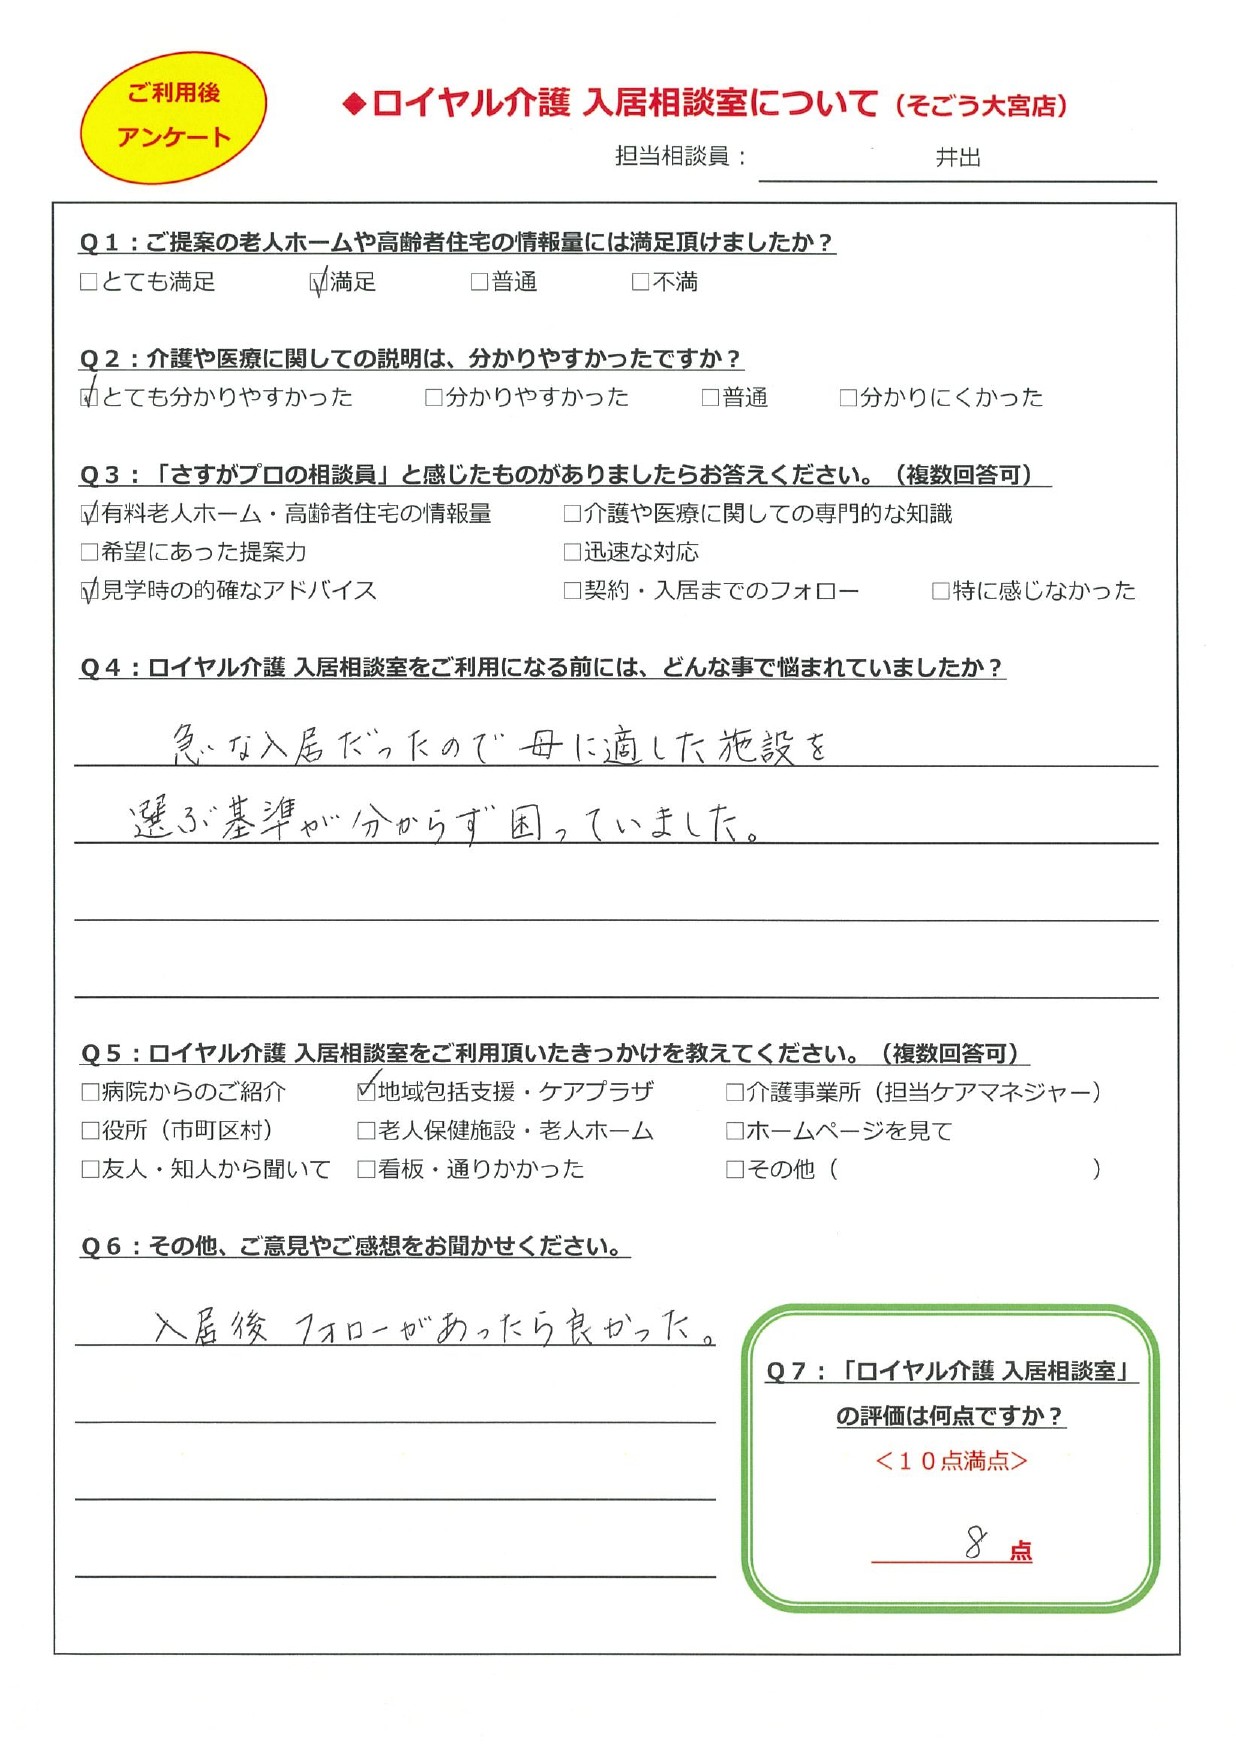 ご利用後
アンケート
◆ロイヤル介護 入居相談室について（そごう大宮店）
担当相談員： 井出
Ｑ１：ご提案の老人ホームや高齢者住宅の情報量には満足頂けましたか？
□とても満足 ☑満足 □普通 □不満
Ｑ２：介護や医療に関しての説明は、分かりやすかったですか？
☑とても分かりやすかった □分かりやすかった □普通 □分かりにくかった
Ｑ３：「さすがプロの相談員」と感じたものがありましたらお答えください。（複数回答可）
☑有料老人ホーム・高齢者住宅の情報量 □介護や医療に関しての専門的な知識
□希望にあった提案力 □迅速な対応
☑見学時の的確なアドバイス □契約・入居までのフォロー □特に感じなかった
Ｑ４：ロイヤル介護 入居相談室をご利用になる前には、どんな事で悩まれていましたか？
急な入居だったので母に適した施設を
選ぶ基準が分からず困っていました。
Ｑ５：ロイヤル介護 入居相談室をご利用頂いたきっかけを教えてください。（複数回答可）
□病院からのご紹介 ☑地域包括支援・ケアプラザ □介護事業所（担当ケアマネジャー）
□役所（市町区村） □老人保健施設・老人ホーム □ホームページを見て
□友人・知人から聞いて □看板・通りかかった □その他（ ）
Ｑ６：その他、ご意見やご感想をお聞かせください。
入居後 フォローがあったら良かった。
Ｑ７：「ロイヤル介護 入居相談室」
の評価は何点ですか？
＜１０点満点＞
8 点